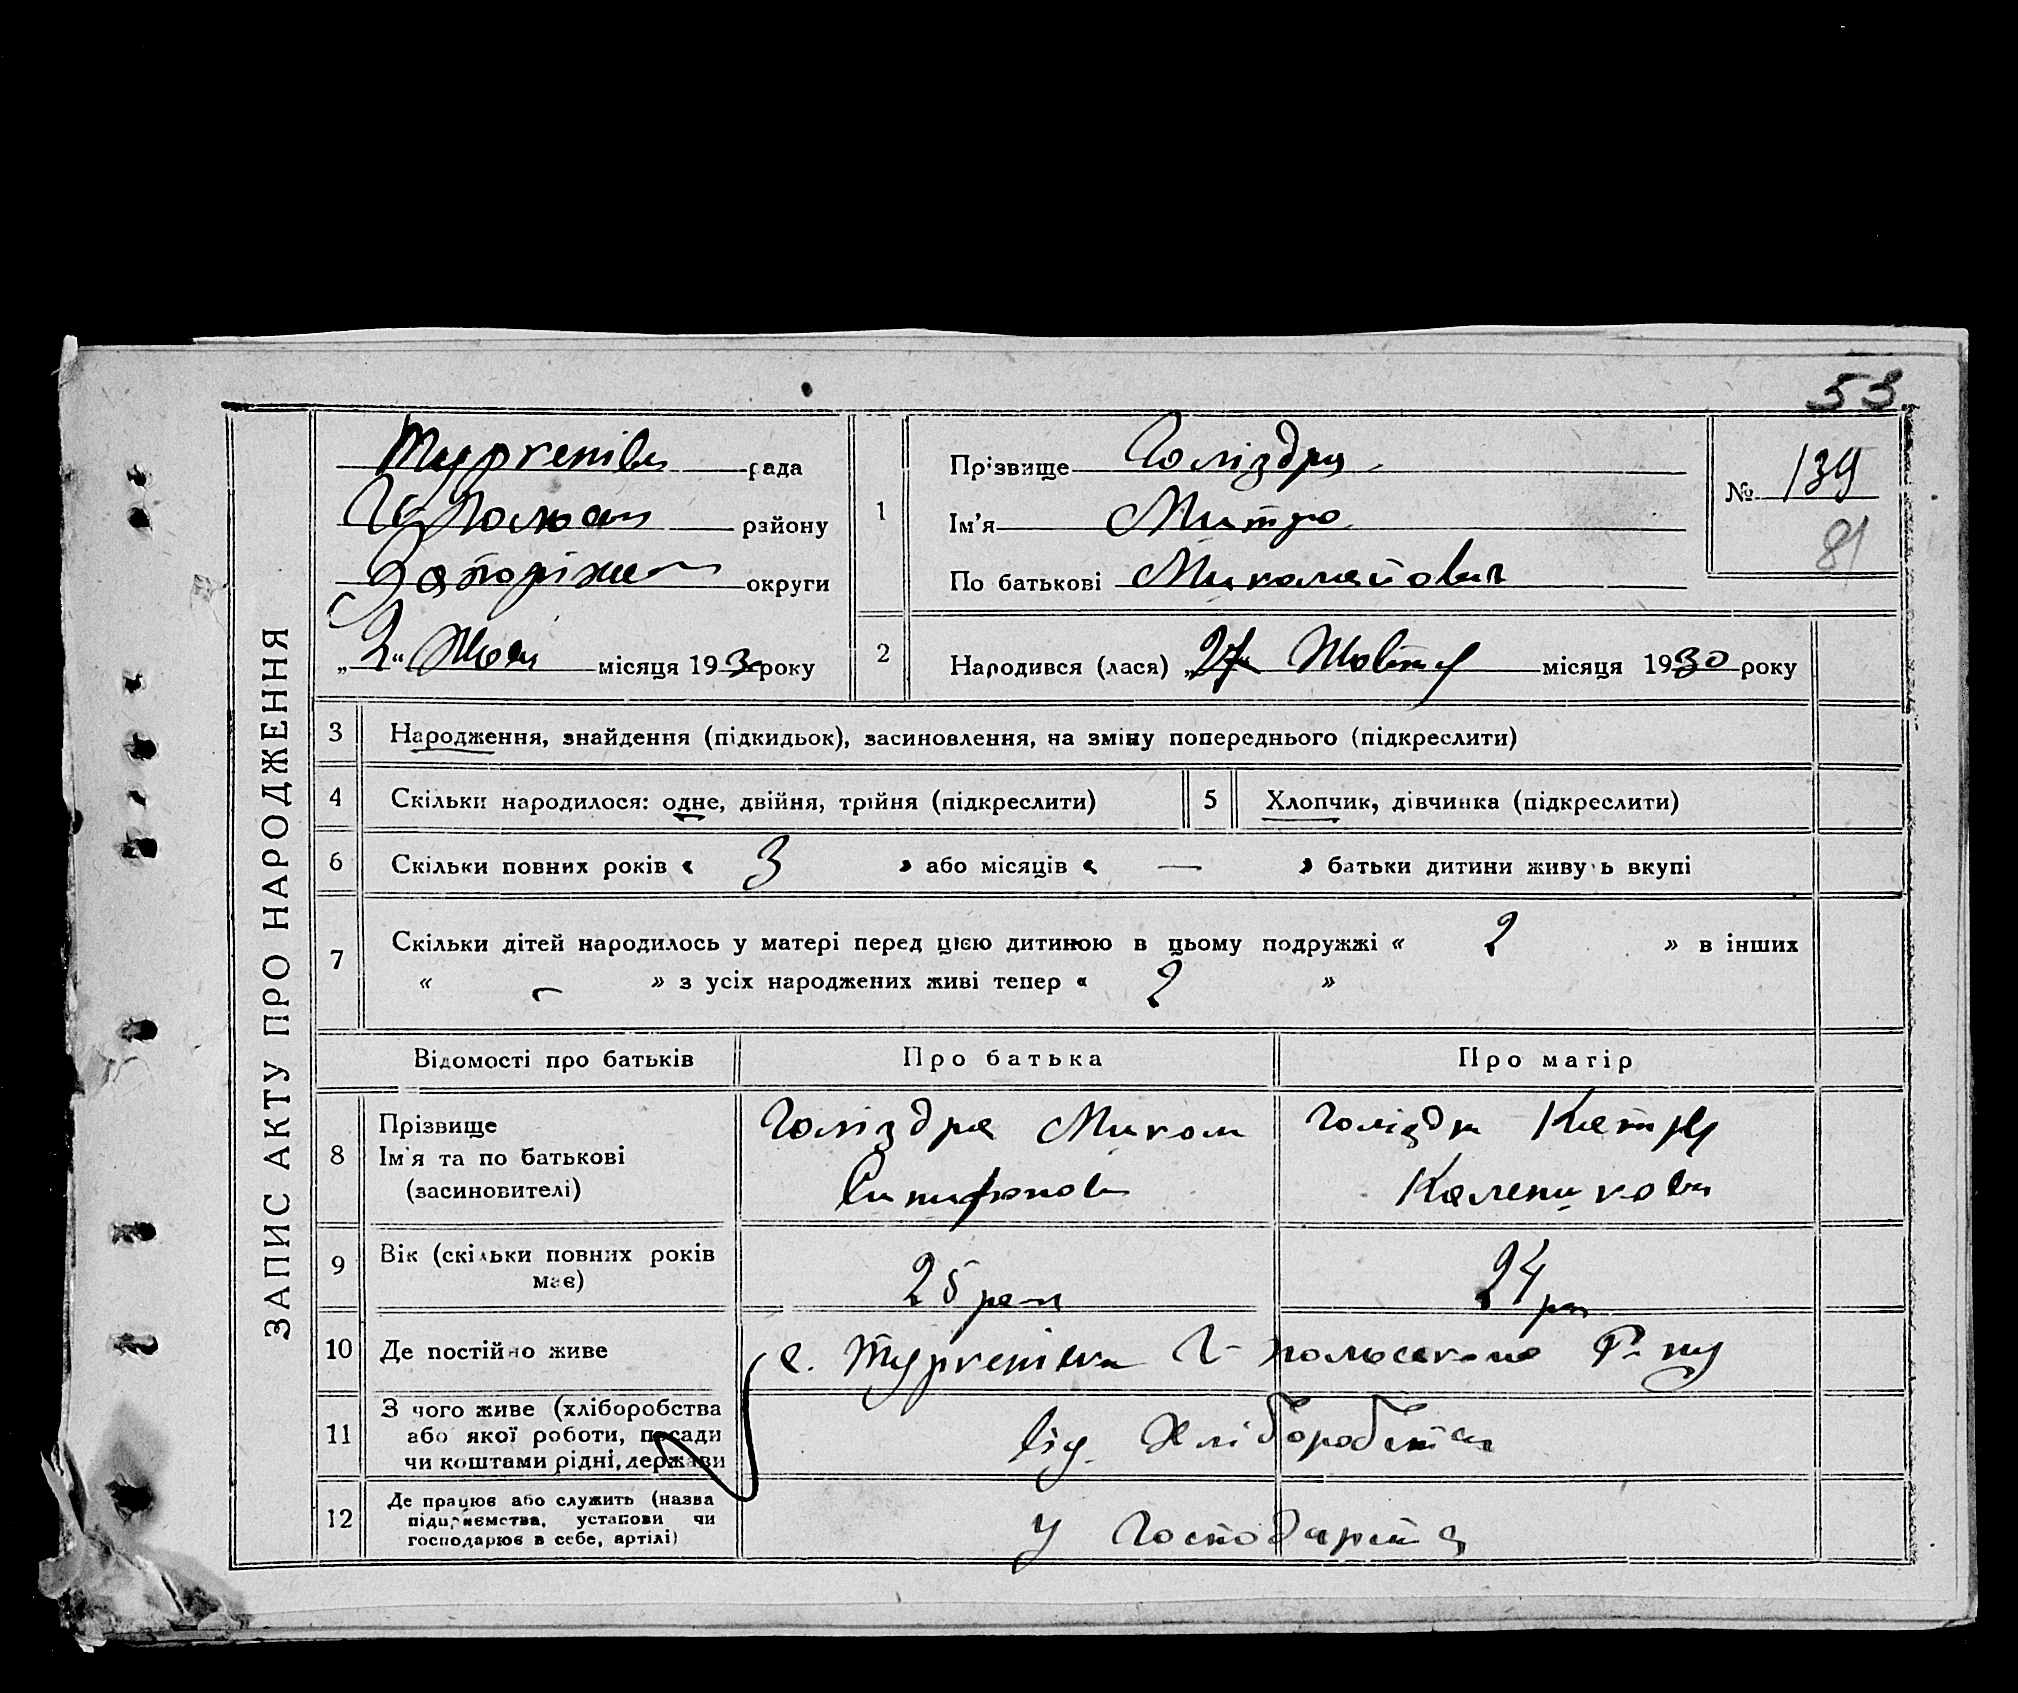 53.
ЗАПИС АКТУ ПРО НАРОДЖЕННЯ
Тургенівс рада
району
Запоріжс округи
„2“ місяця 1930 року
1
Прізвище Голіздра
Ім’я Митро
По батькові Миколайович
№ 139
81
2
Народився (лася) „27“ Жовтня місяця 1930 року
3 Народження, знайдення (підкидьок), засиновлення, на зміну попереднього (підкреслити)
4 Скільки народилося: одне, двійня, трійня (підкреслити) 5 Хлопчик, дівчинка (підкреслити)
6 Скільки повних років « 3 » або місяців « — » батьки дитини живуть вкупі
7 Скільки дітей народилось у матері перед цією дитиною в цьому подружжі « 2 » в інших
« - » з усіх народжених живі тепер « 2 »
Відомості про батьків Про батька Про матір
8 Прізвище Ім’я та по батькові (засиновителі)
Голіздра Микол
Голіздра Катер
Каленикова
9 Вік (скільки повних років має) 25 рок 24 рок
10 Де постійно живе с. Тургенівка Г-польського Р-ну
11 З чого живе (хліборобства або якої роботи, посади чи коштами рідні, держави від Хліборобства
12 Де працює або служить (назва підприємства, установи чи господарює в себе, артілі) у Господарстві